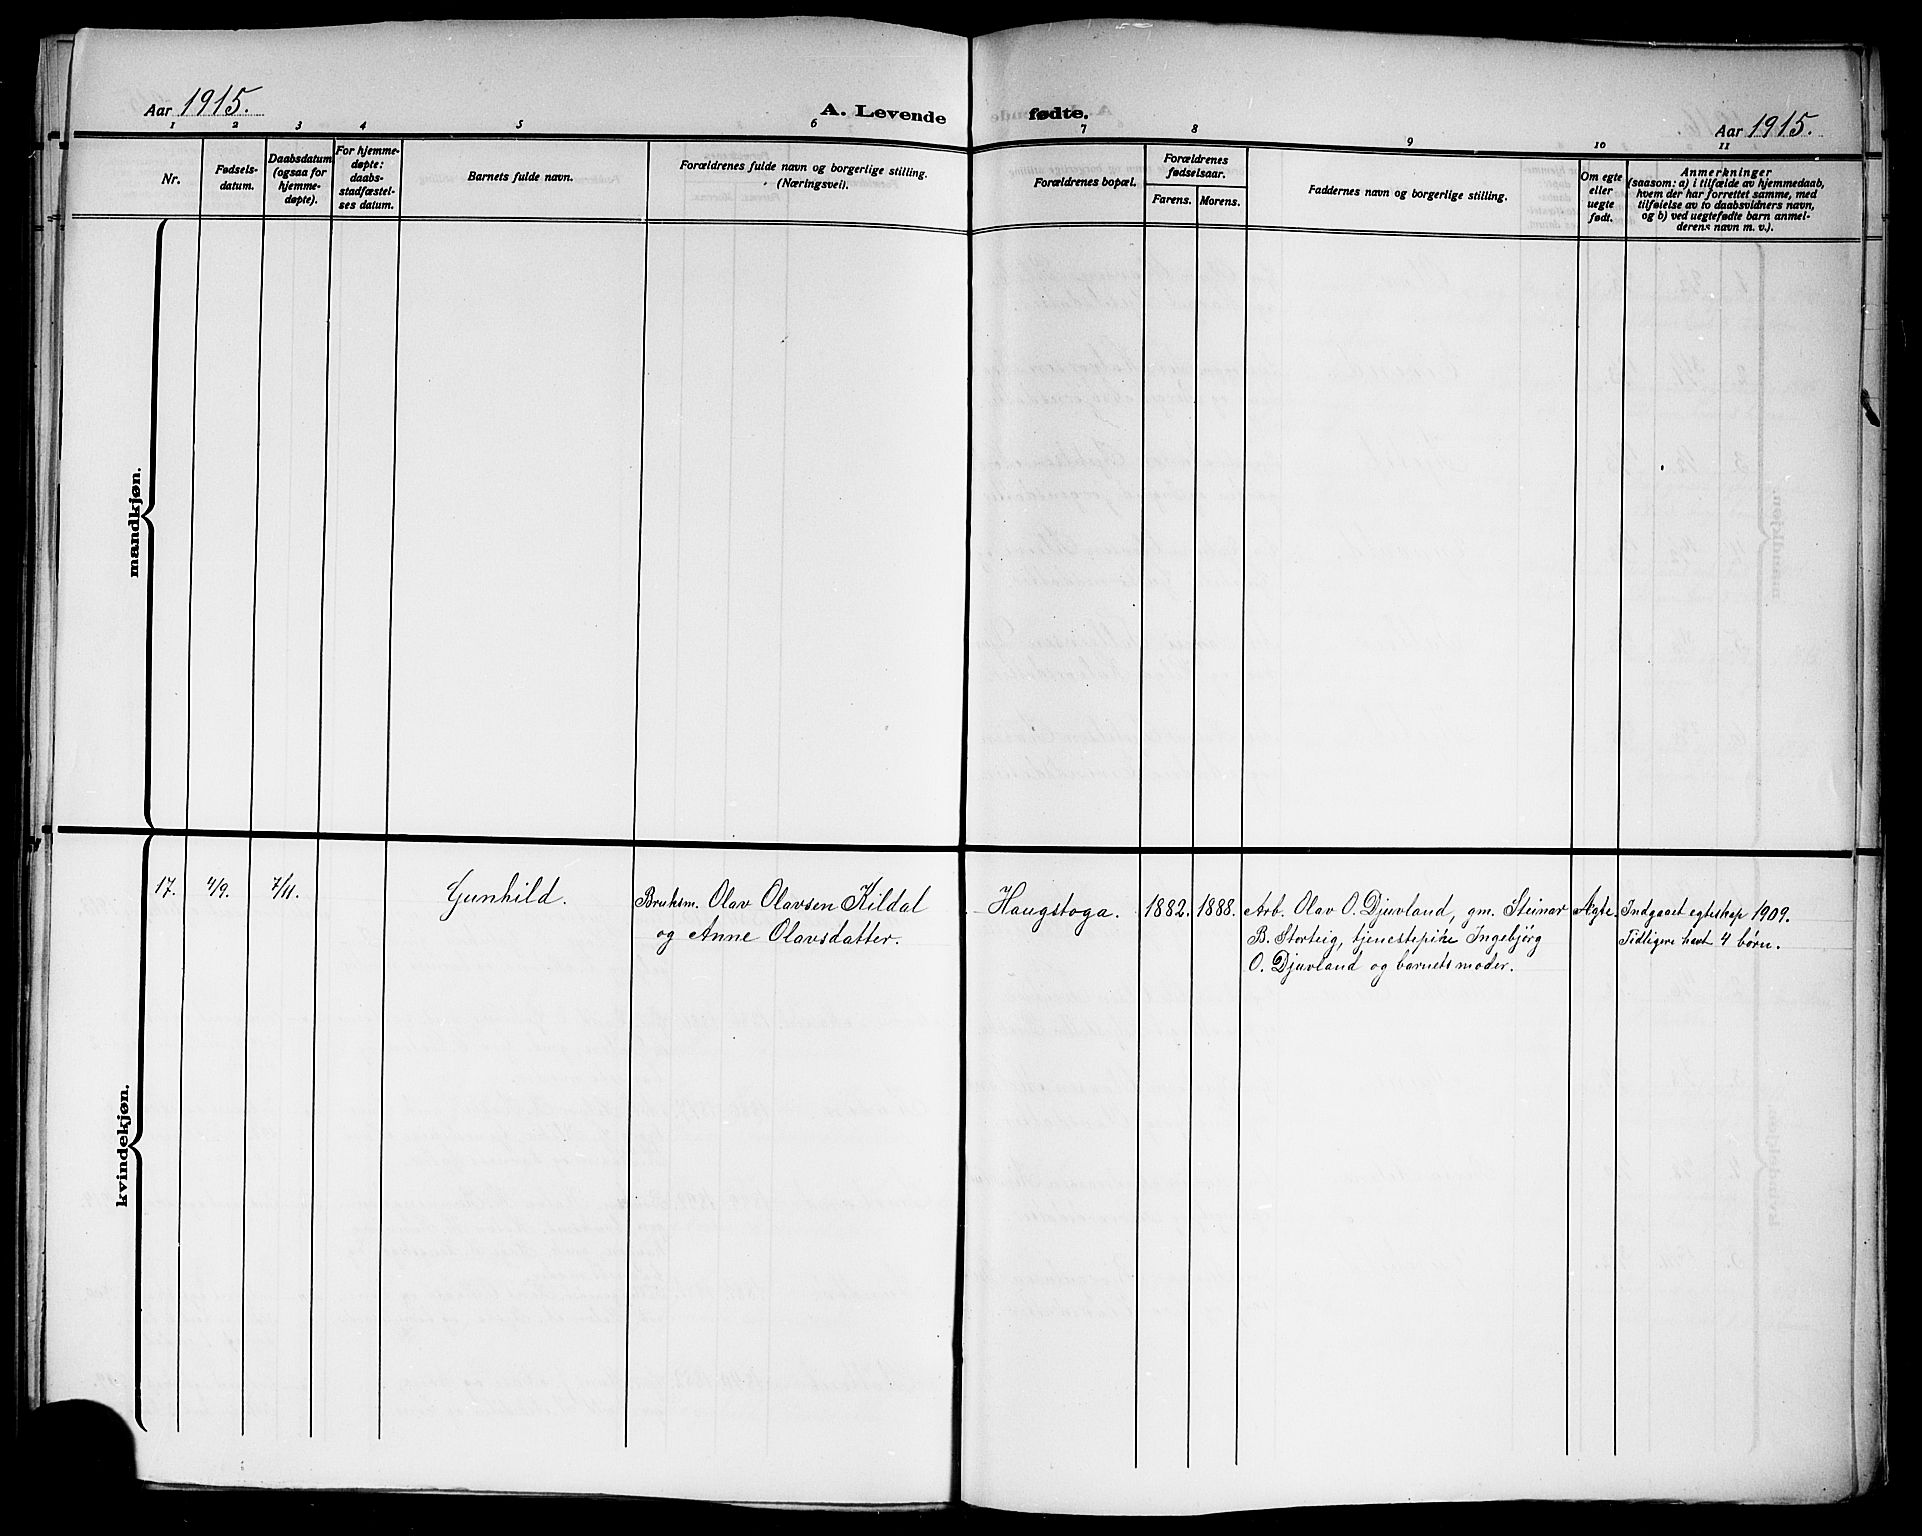 Aar 1915.
A. Levende fødte.
Aar 1915.
1 2 3 4 5 6 7 8 9 10 11
Nr.
Fødsels-
datum.
Daabsdatum
(ogsaa for
hjemme-
døpte).
For hjemme-
døpte:
daabs-
stadfæstel-
ses datum.
Barnets fulde navn.
Forældrenes fulde navn og borgerlige stilling.
(Næringsvei).
Forældrenes bopæl.
Forældrenes
fødselsaar.
Farens. Morens.
Faddernes navn og borgerlige stilling.
Om egte
eller
uegte
født.
Anmerkninger
(saasom: a) i tilfælde av hjemmedaab,
hvem der har forrettet samme, med
tilføielse av to daabsvidners navn,
og b) ved uegtefødte barn anmel-
derens navn m. v.).
mandkjøn.
kvindekjøn.
17.
4/9.
7/11.
Gunhild.
Bruksm. Olav Olavsen Kildal
og Anne Olavsdatter.
Haugstoga.
1882.
1888.
Arb. Olav O. Djuvland, gm. Steinar
B. Storteig, tjenestepike Ingebjørg
O. Djuvland og barnets moder.
Ægte.
Indgaaet egteskap 1909.
Tidligere havt 4 børn.